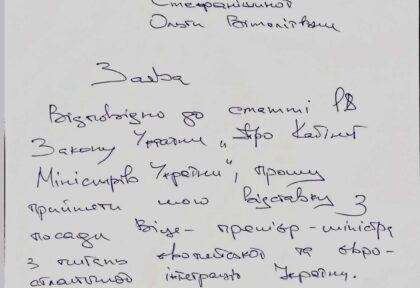 Стефанішиної
Ольги Віталіївни
Заява
Відповідно до статті 18
Закону України „Про Кабінет
Міністрів України", прошу
прийняти мою відставку з
посади Віце-прем'єр-міністра
з питань європейської та євро-
атлантичної інтеграції України.